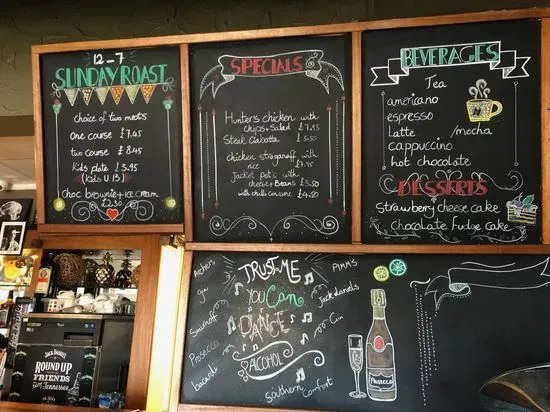 12-7
SUNDAY ROAST
choice of two meats
One course £7.45
two course £8.45
Kids plate £3.95
(Kids U 13)
choc brownie + ice cream
£2.50
SPECIALS
Hunters chicken with
chips + salad £7.95
Steak Ciabatta £5.50
chicken stroganoff with
rice £7.95
Jacket pot's with
cheese + Beans £3.50
with chilli con carne £4.50
BEVERAGES
Tea
americano
espresso
latte /mocha
cappuccino
hot chocolate
DESSERTS
Strawberry cheese cake
chocolate fudge cake
TRUST ME
YOU CAN
DANCE
ALCOHOL
Archers
gin
Smirnoff
Prosecco
bacardi
PIMM'S
Jack daniels
Gin
Southern Comfort
Prosecco
JACK DANIEL'S
ROUND UP
YOUR
FRIENDS
Tennessee